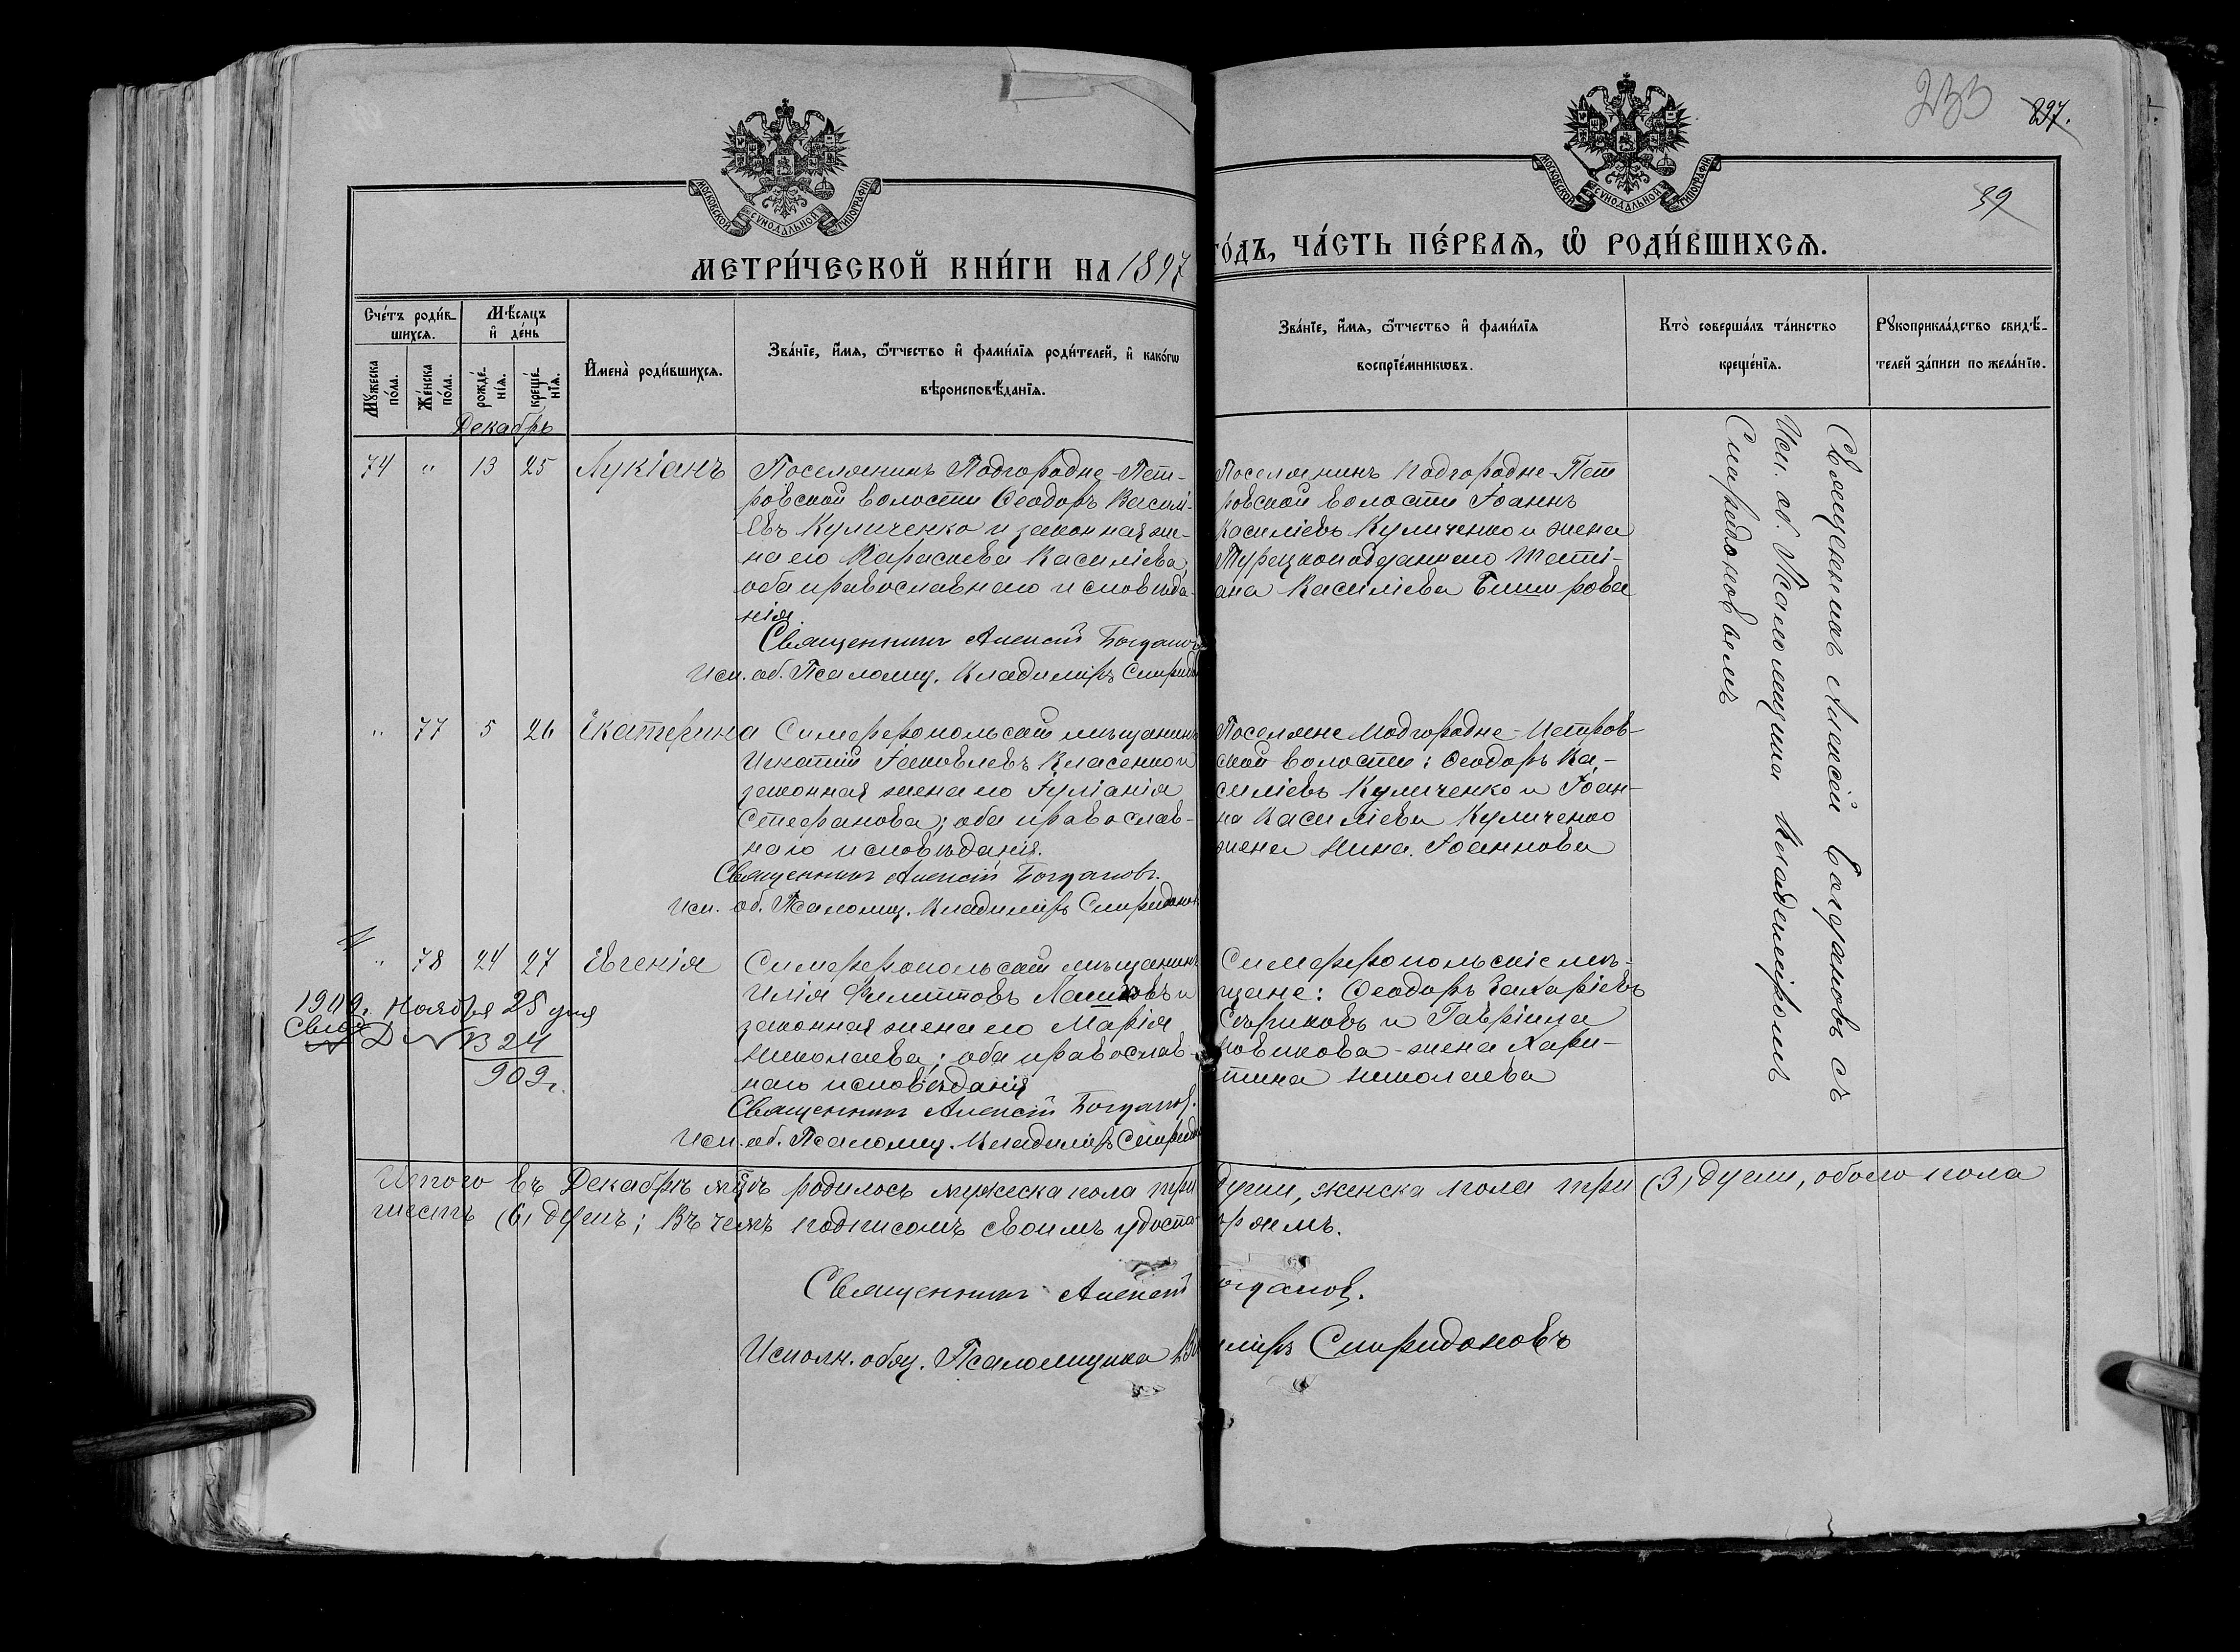 233
897.
39
МОСКОВСКОЙ СѴНОДАЛЬНОЙ ТИПОГРАФІИ
МОСКОВСКОЙ СѴНОДАЛЬНОЙ ТИПОГРАФІИ
МЕТРИ́ЧЕСКОЙ КНИ́ГИ НА 1897 ГО́ДЪ, ЧА́СТЬ ПЕ́РВАЯ, Ѡ РОДИ́ВШИХСЯ.
Сче́тъ роди́в-
шихся.
Мꙋ́жеска по́ла.
Же́нска по́ла.
Мѣ́сяцъ
и҆ де́нь
рожде́нїя.
креще́нїя.
И҆мена̀ роди́вшихся.
Зва́нїе, и҆́мя, ѻ҆́тчество и҆ фами́лїя роди́телей, и҆ како́гѡ
вѣроисповѣ́данїя.
Зва́нїе, и҆́мя, ѻ҆́тчество и҆ фами́лїя
воспрїе́мникѡвъ.
Кто̀ соверша́лъ та́инство
креще́нїя.
Рꙋкоприкла́дство свидѣ́-
телей за́писи по жела́нїю.
Декабрь
74 " 13 25 Лукіанъ
Поселянинъ Подгородне-Пет-
ровской волости Ѳеодоръ Василі-
евъ Куличенко и законная же-
на его Параскева Василіева,
оба православнаго исповѣда-
нія.
Священникъ Алексій Богдановъ
Исп. об. Псаломщ. Владиміръ Спиридо
Поселянинъ Подгородне-Пет
ровской волости Іоаннъ
Василіевъ Куличенко и жена
Турецкоподданнаго Татті-
ана Василіева
" 77 5 26 Екатерина
Симферопольскій мѣщанинъ
Игнатій Іаковлевъ Власенко и
законная жена его Іуліанія
Стефанова; оба православ-
наго исповѣданія.
Священникъ Алексій Богдановъ.
Исп. об. Псаломщ. Владиміръ Спиридонов
Поселяне Подгородне-Петров-
ской волости: Ѳеодоръ Ва-
силіевъ Куличенко и Іоан-
на Василіева Куличенко
жена Нина Іоаннова
" 78 24 27 Евгенія
Симферопольскій мѣщанинъ
Илія Филипповъ и
законная жена его Марія
Николаева; оба православ-
наго исповѣданія
Священникъ Алексій Богдановъ.
Исп. об. Псаломщ. Владиміръ Спиридо
Симферопольскіе мѣ-
щане: Ѳеодоръ Захаріевъ
и Гавріила
Новикова - жена Хари-
тина Николаева
1909. Ноября 25 дня
Свид.
324
909 г.
Священникъ Алексій Богдановъ съ
Исп. об. Псаломщика Владиміромъ
Спиридоновымъ
Итого въ Декабрѣ мѣс. родилось мужеска пола три души, женска пола три (3) души, обоего пола
шесть (6) душъ; въ чемъ подписомъ своимъ удостовѣряемъ.
Священникъ Алексій Богдановъ.
Исполн. обяз. Псаломщика Владиміръ Спиридоновъ